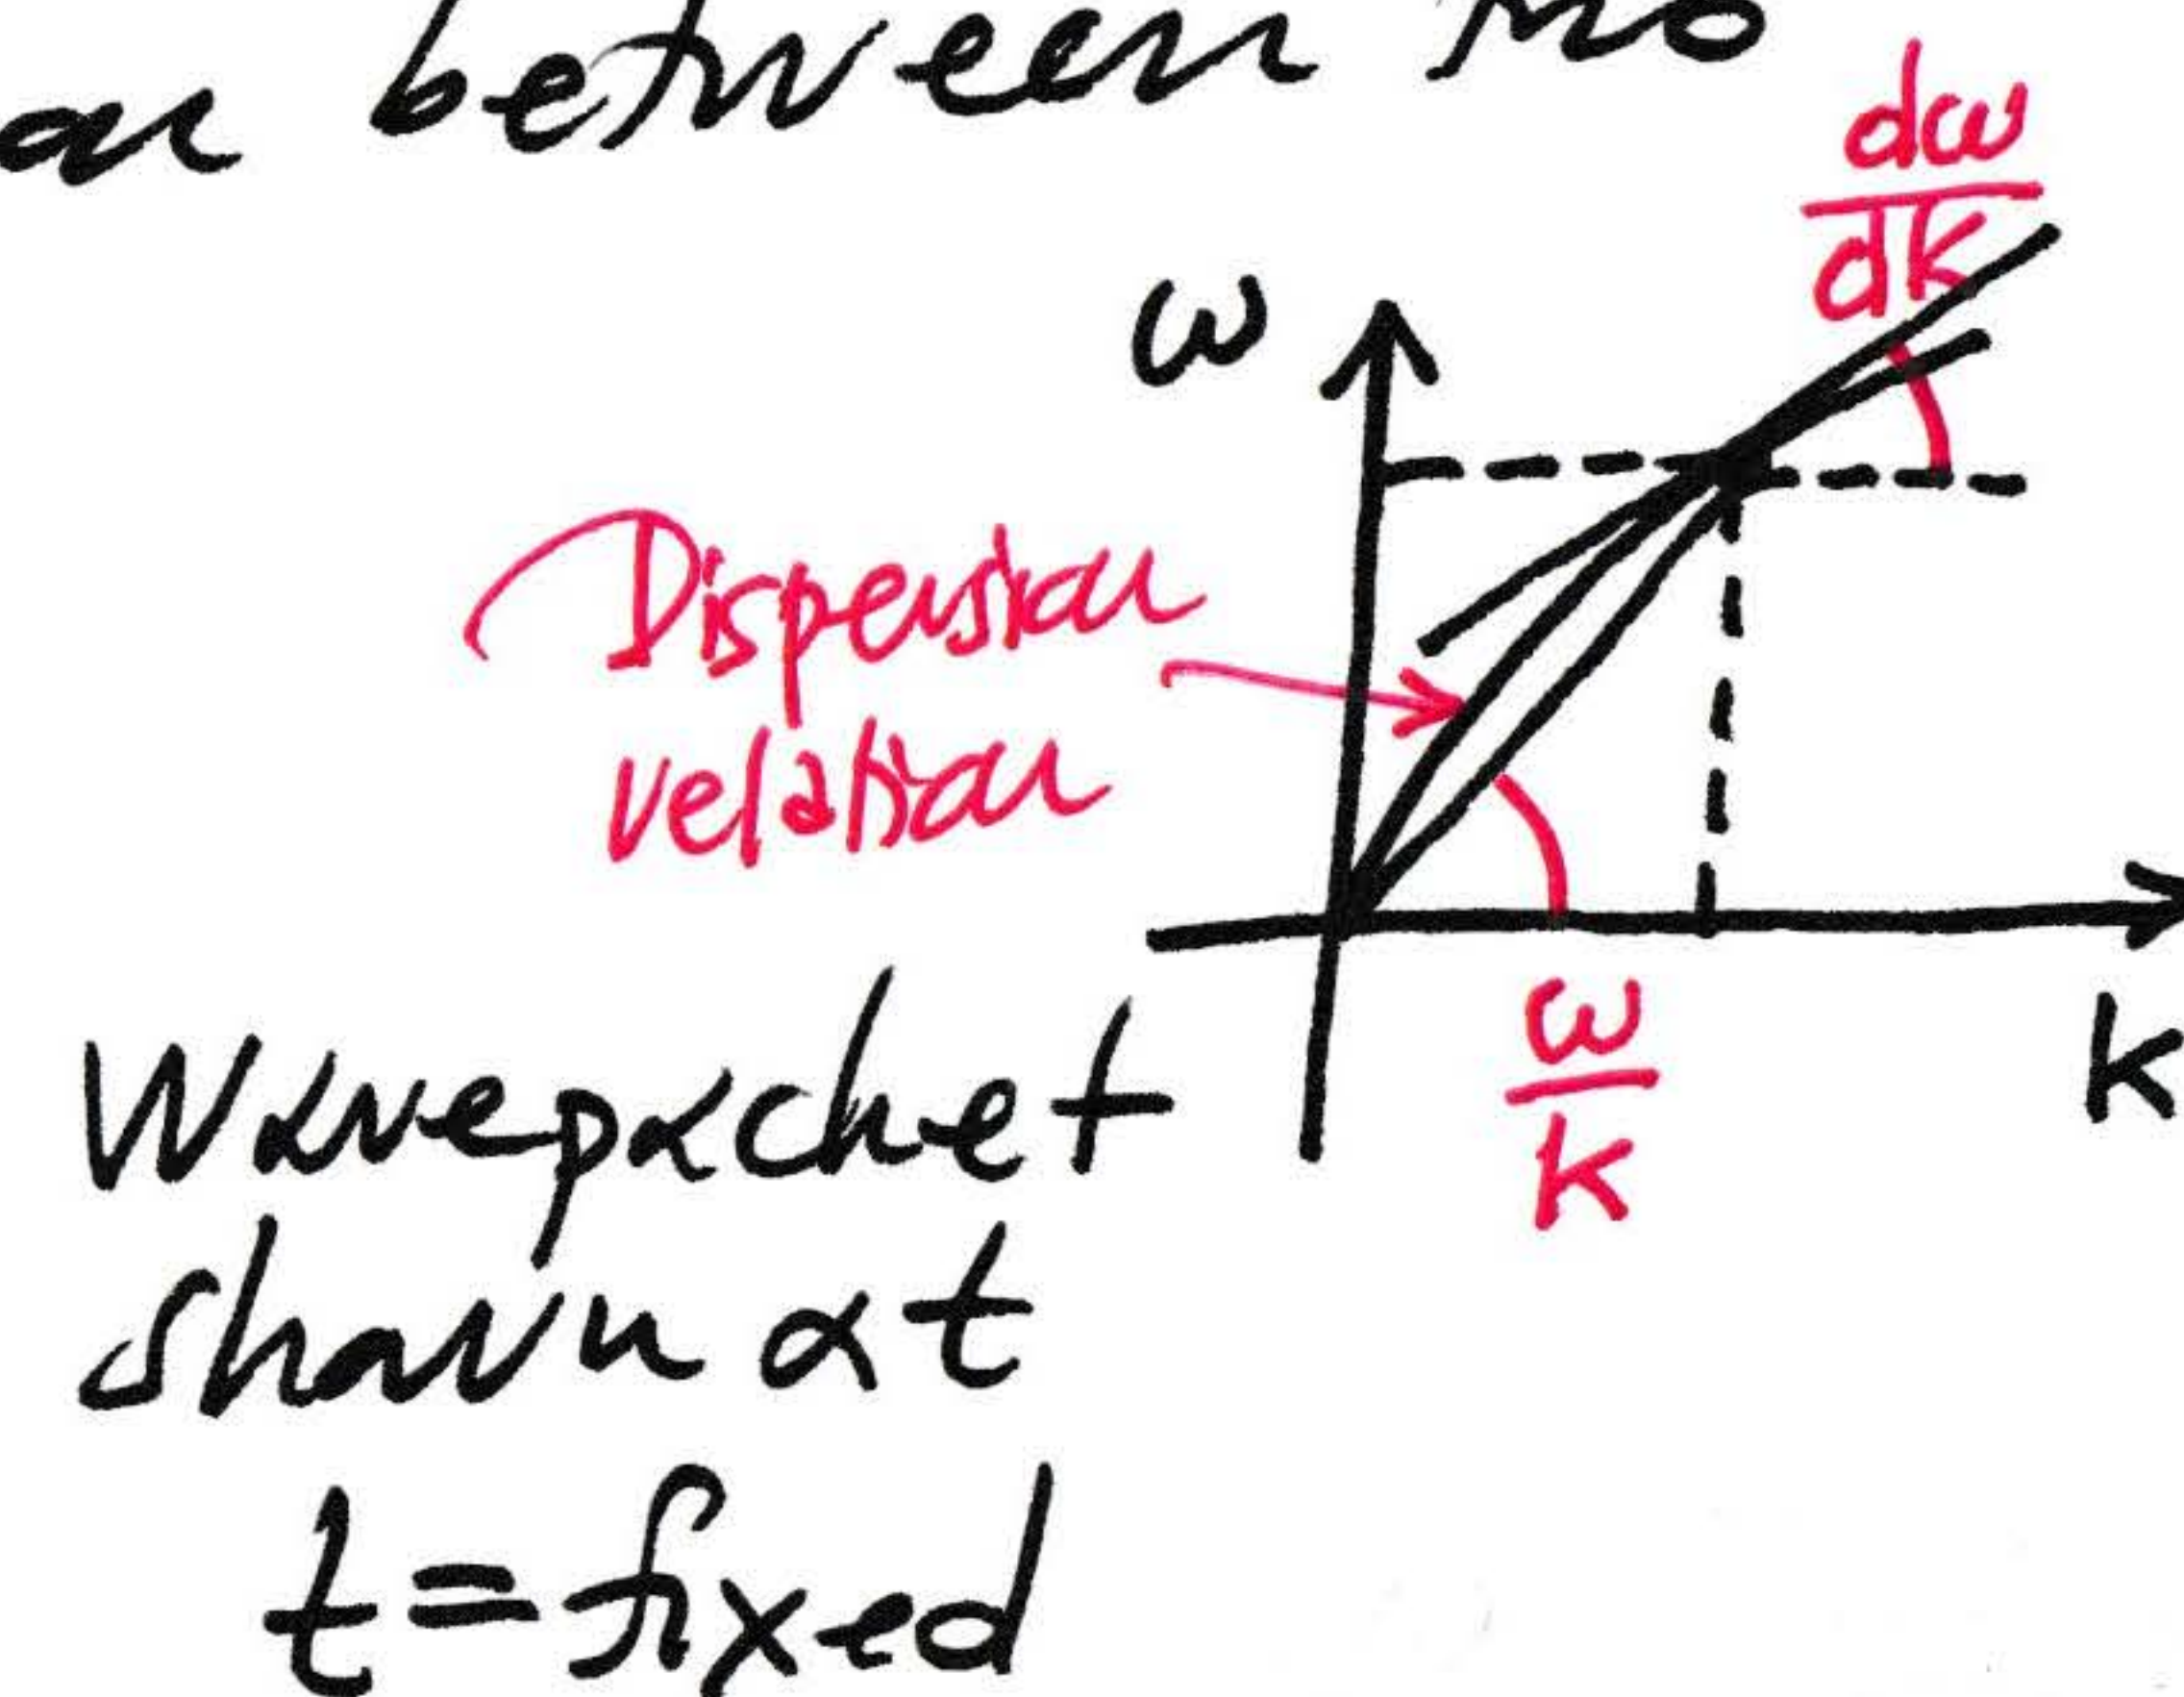 on between
dω
dk
ω
Dispersion
relation
ω
k
k
Wavepacket
shown at
t=fixed